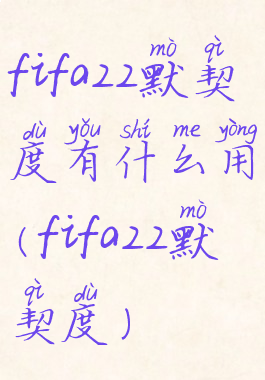 mò qì
fifa22默契
dù yǒu shí me yòng
度有什么用
mò
(fifa22默
qì dù
契度)